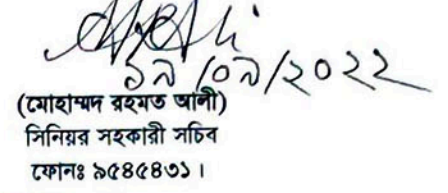 ১৯/০৯/২০২২
(মোহাম্মদ রহমত আলী)
সিনিয়র সহকারী সচিব
ফোনঃ ৯৫৪৫৪৩১ ।